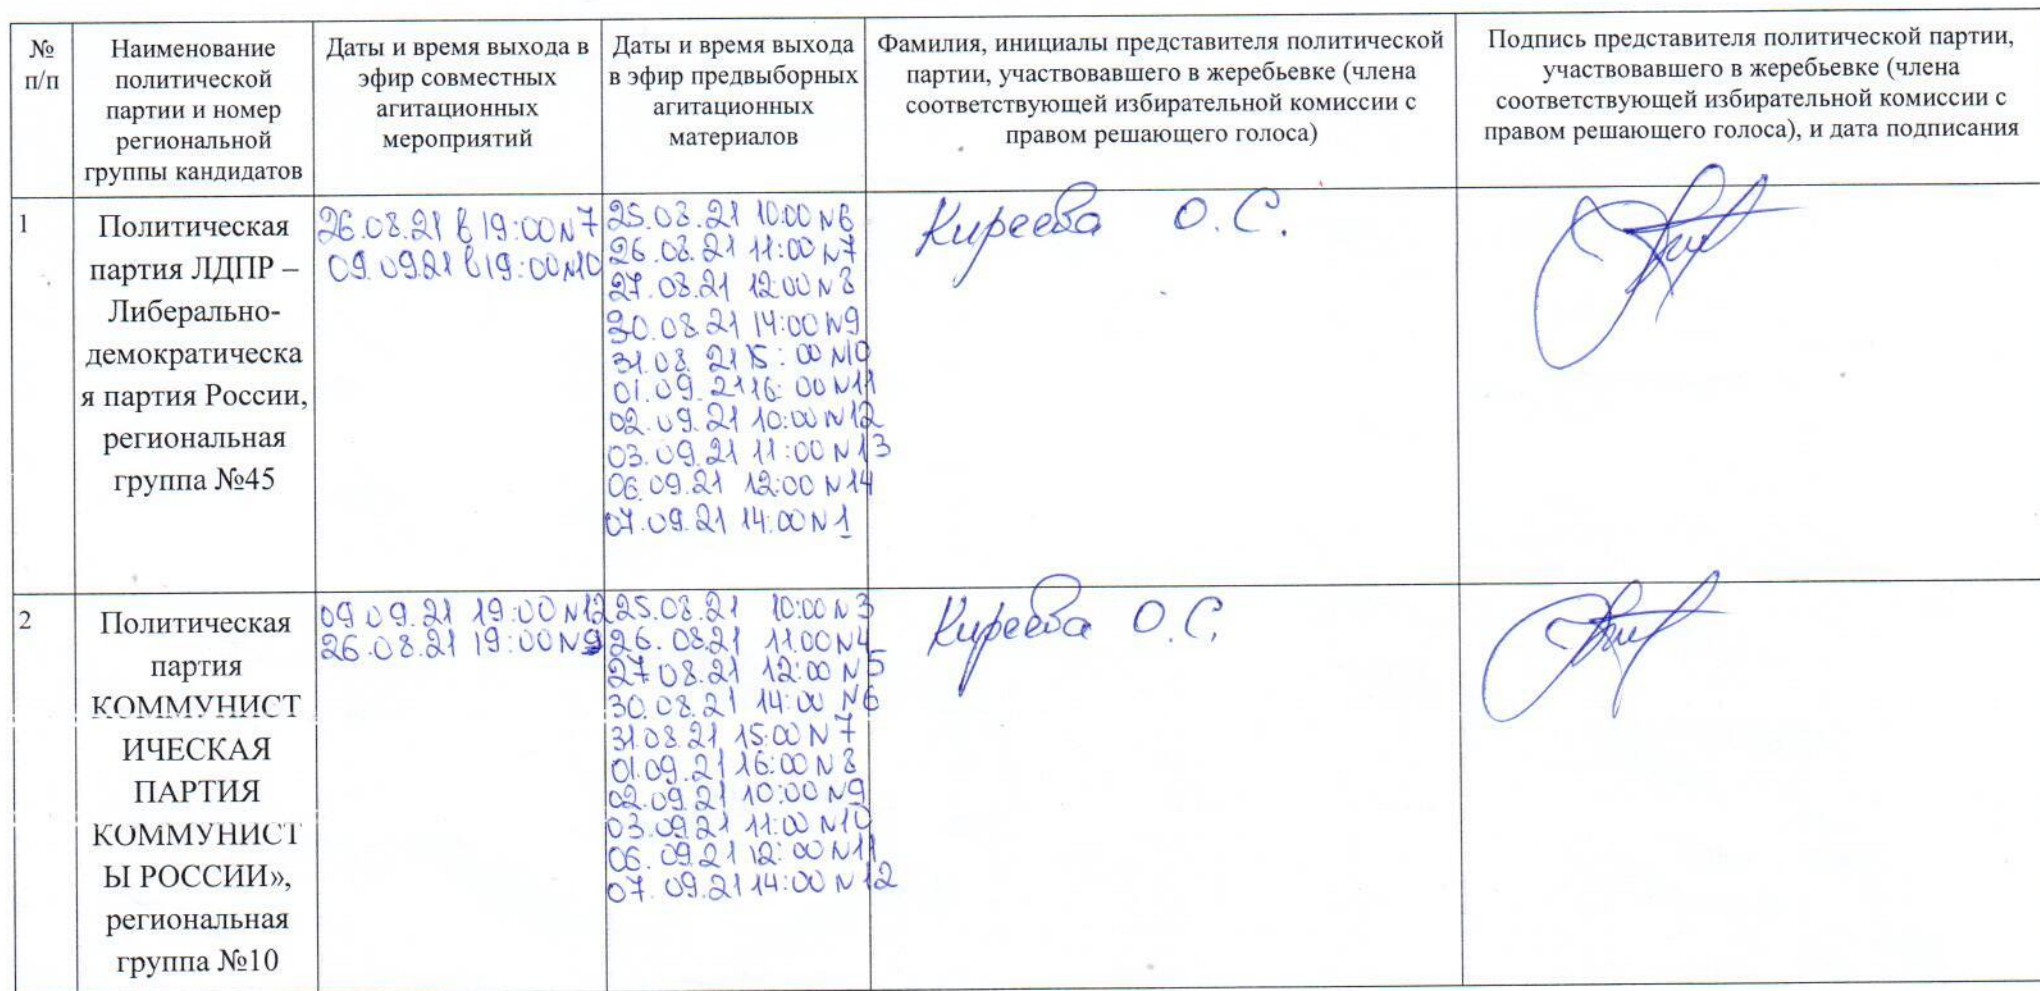 №
п/п
Наименование
политической
партии и номер
региональной
группы кандидатов
Даты и время выхода в
эфир совместных
агитационных
мероприятий
Даты и время выхода
в эфир предвыборных
агитационных
материалов
Фамилия, инициалы представителя политической
партии, участвовавшего в жеребьевке (члена
соответствующей избирательной комиссии с
правом решающего голоса)
Подпись представителя политической партии,
участвовавшего в жеребьевке (члена
соответствующей избирательной комиссии с
правом решающего голоса), и дата подписания
1
Политическая
партия ЛДПР –
Либерально-
демократическа
я партия России,
региональная
группа №45
26.08.21 в 19:00 N7
09.09.21 в 19:00 N10
25.08.21 10:00 N6
26.08.21 11:00 N7
27.08.21 12:00 N8
30.08.21 14:00 N9
31.08.21 15:00 N10
01.09.21 16:00 N11
02.09.21 10:00 N12
03.09.21 11:00 N13
06.09.21 12:00 N14
07.09.21 14:00 N1
Киреева О.С.
2
Политическая
партия
КОММУНИСТ
ИЧЕСКАЯ
ПАРТИЯ
КОММУНИСТ
Ы РОССИИ»,
региональная
группа №10
09.09.21 19:00 N12
26.08.21 19:00 N9
25.08.21 10:00 N3
26.08.21 11:00 N4
27.08.21 12:00 N5
30.08.21 14:00 N6
31.08.21 15:00 N7
01.09.21 16:00 N8
02.09.21 10:00 N9
03.09.21 11:00 N10
06.09.21 12:00 N11
07.09.21 14:00 N12
Киреева О.С.